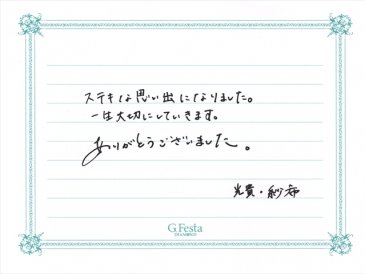 ステキな思い出になりました。
一生大切にしていきます。
ありがとうございました。
光貴・紗希
G.Festa
DIAMOND